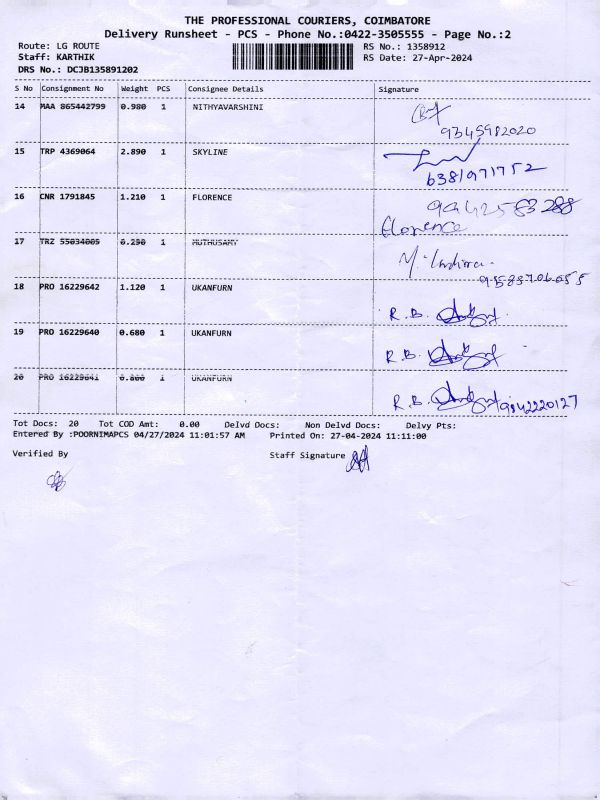 THE PROFESSIONAL COURIERS, COIMBATORE
Delivery Runsheet - PCS - Phone No.:0422-3505555 - Page No.:2
Route: LG ROUTE
RS No.: 1358912
Staff: KARTHIK
RS Date: 27-Apr-2024
DRS No.: DCJB135891202
S No Consignment No Weight PCS Consignee Details Signature
14 MAA 865442799 0.980 1 NITHYAVARSHINI
9345982020
15 TRP 4369064 2.890 1 SKYLINE
6381971752
16 CNR 1791845 1.210 1 FLORENCE
9942583288
Florence
17 TRZ 55034005 0.290 1 MUTHUSAMY
18 PRO 16229642 1.120 1 UKANFURN
R.B.
19 PRO 16229640 0.680 1 UKANFURN
R.B.
20 PRO 16229641 0.800 1 UKANFURN
R.B. 9842220127
Tot Docs: 20 Tot COD Amt: 0.00 Delvd Docs: Non Delvd Docs: Delvy Pts:
Entered By :POORNIMAPCS 04/27/2024 11:01:57 AM Printed On: 27-04-2024 11:11:00
Verified By
Staff Signature